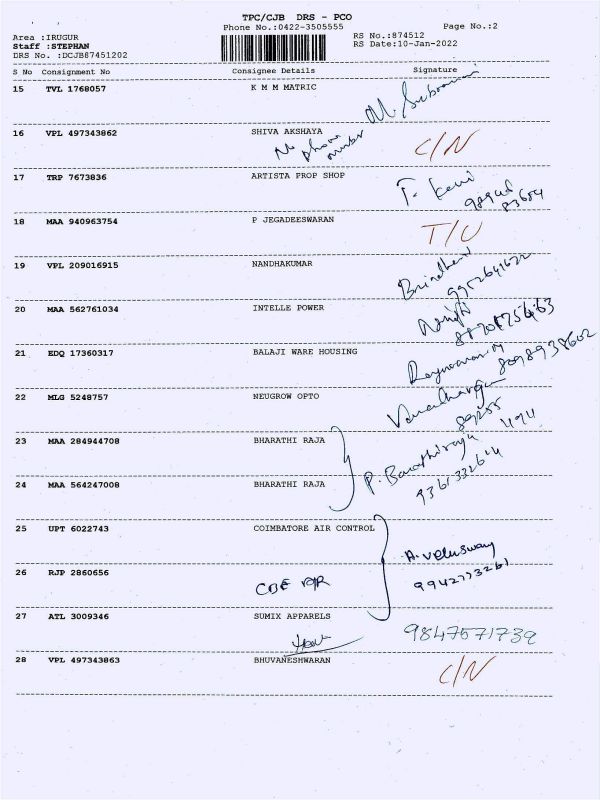 TPC/CJB DRS - PCO
Phone No.:0422-3505555
Page No.:2
Area :IRUGUR
RS No.:874512
Staff :STEPHAN
RS Date:10-Jan-2022
DRS No. :DCJB87451202
S No Consignment No Consignee Details Signature
15 TVL 1768057 K M M MATRIC
16 VPL 497343862 SHIVA AKSHAYA
No phone number C/N
17 TRP 7673836 ARTISTA PROP SHOP
18 MAA 940963754 P JEGADEESWARAN
T/U
19 VPL 209016915 NANDHAKUMAR
9952641622
20 MAA 562761034 INTELLE POWER
21 EDQ 17360317 BALAJI WARE HOUSING
8098938602
22 MLG 5248757 NEUGROW OPTO
23 MAA 284944708 BHARATHI RAJA
P. Barathiraja
9361332614
24 MAA 564247008 BHARATHI RAJA
25 UPT 6022743 COIMBATORE AIR CONTROL
A. Veluswamy
26 RJP 2860656 CBE AIR
9942773261
27 ATL 3009346 SUMIX APPARELS
9847571739
28 VPL 497343863 BHUVANESHWARAN
C/N